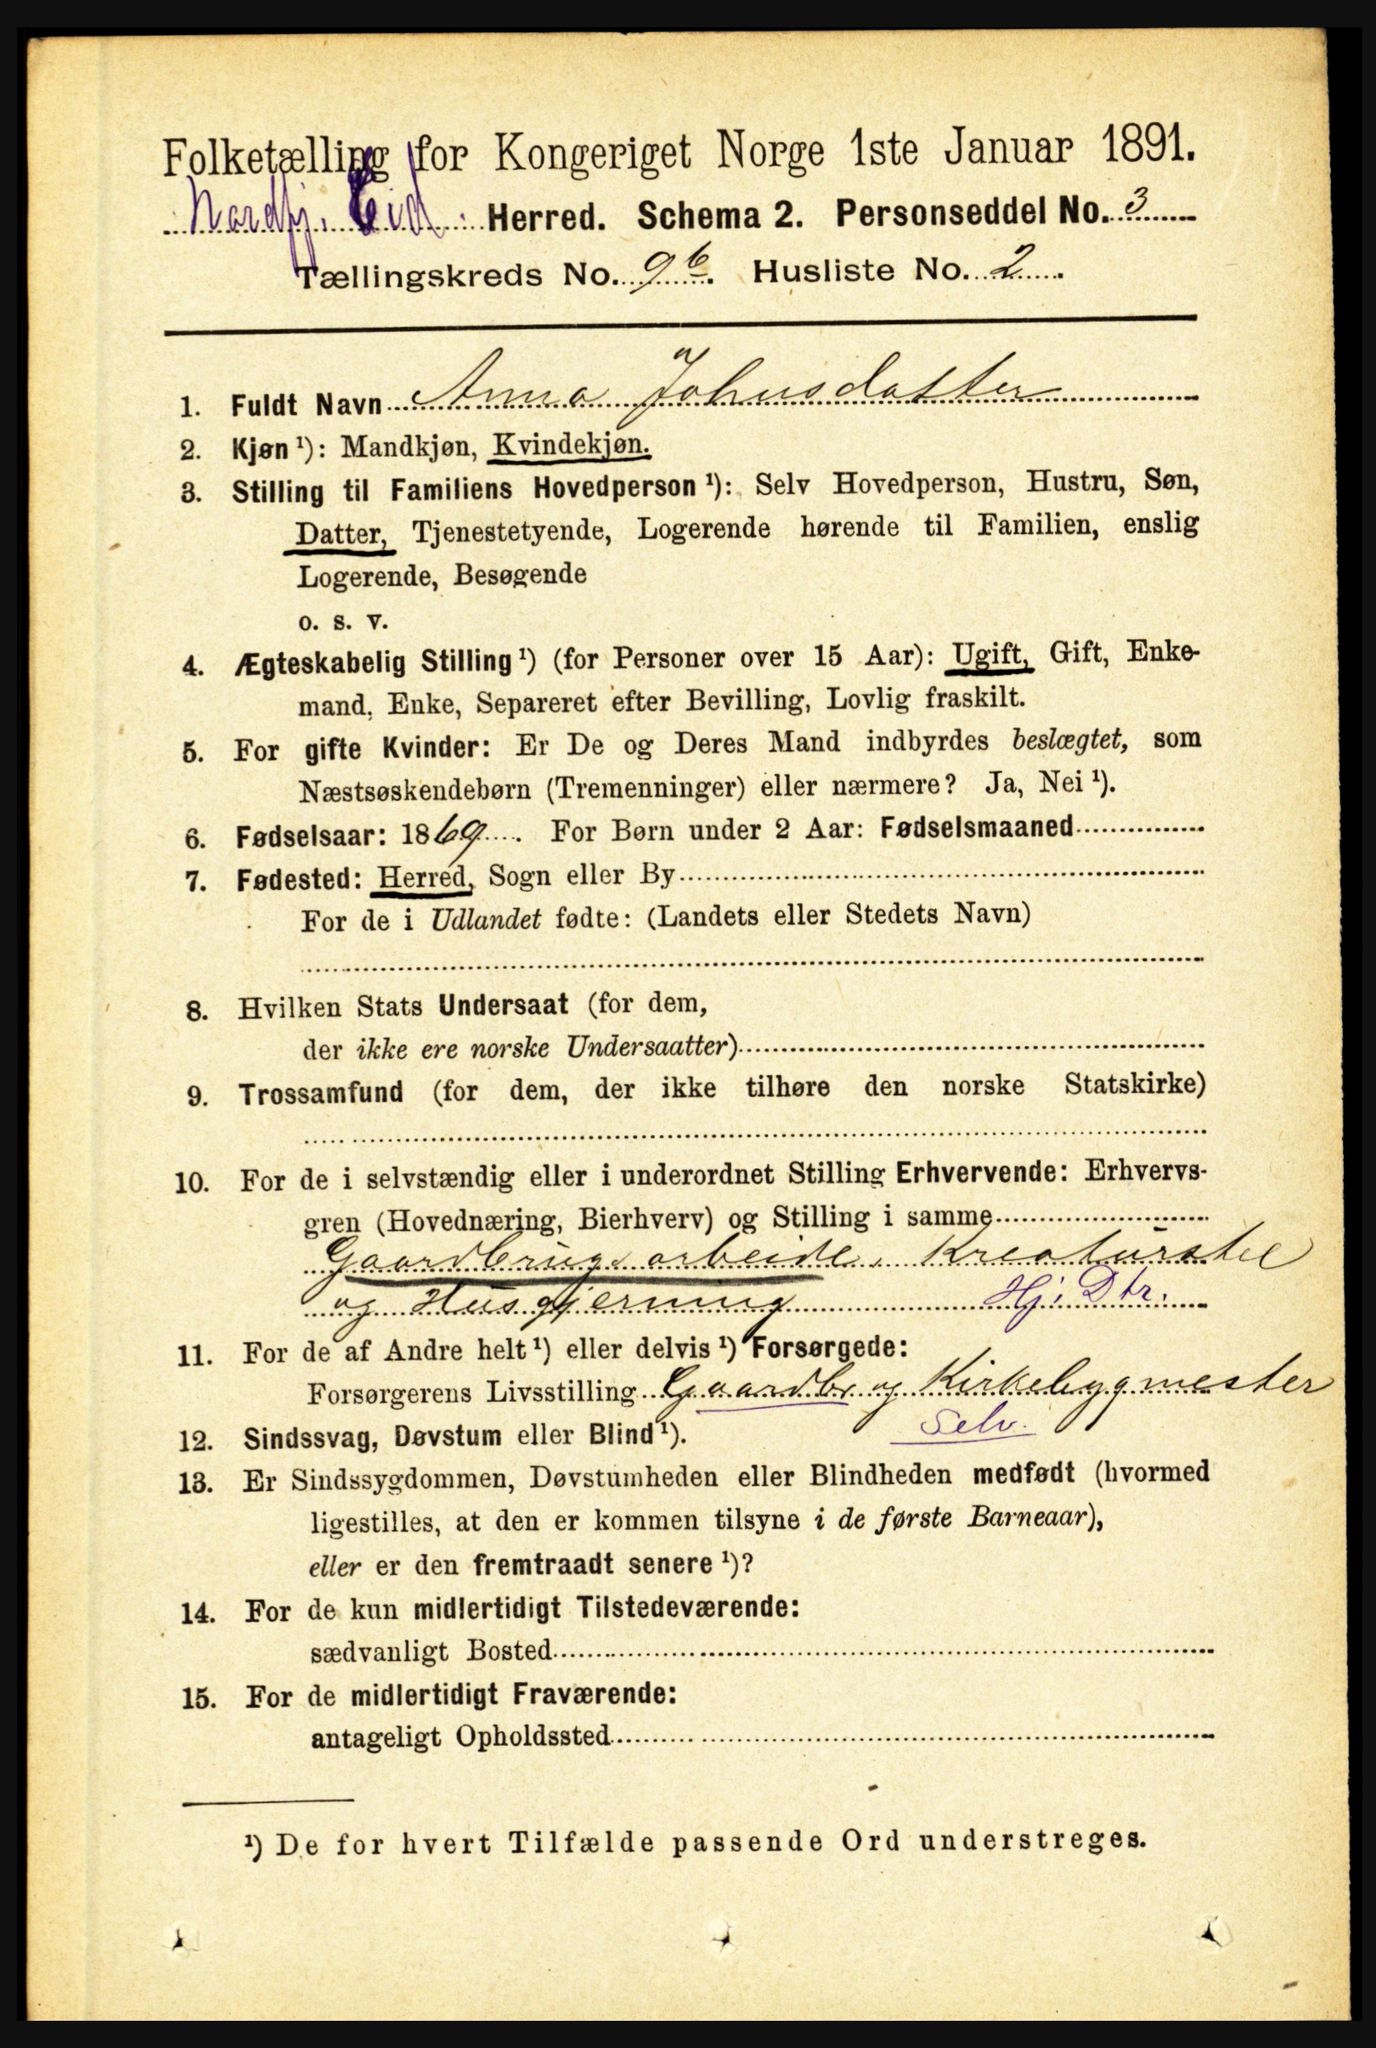 Folketælling for Kongeriget Norge 1ste Januar 1891.
Nordfj. Eid Herred. Schema 2. Personseddel No. 3
Tællingskreds No. 9b. Husliste No. 2
1. Fuldt Navn Anna Johnsdatter
2. Kjøn ¹): Mandkjøn, Kvindekjøn.
3. Stilling til Familiens Hovedperson ¹): Selv Hovedperson, Hustru, Søn,
Datter, Tjenestetyende, Logerende hørende til Familien, enslig
Logerende, Besøgende
o. s. v.
4. Ægteskabelig Stilling ¹) (for Personer over 15 Aar): Ugift, Gift, Enke-
mand, Enke, Separeret efter Bevilling, Lovlig fraskilt.
5. For gifte Kvinder: Er De og Deres Mand indbyrdes beslægtet, som
Næstsøskendebørn (Tremenninger) eller nærmere? Ja, Nei ¹).
6. Fødselsaar: 1869. For Børn under 2 Aar: Fødselsmaaned
7. Fødested: Herred, Sogn eller By
For de i Udlandet fødte: (Landets eller Stedets Navn)
8. Hvilken Stats Undersaat (for dem,
der ikke ere norske Undersaatter)
9. Trossamfund (for dem, der ikke tilhøre den norske Statskirke)
10. For de i selvstændig eller i underordnet Stilling Erhvervende: Erhvervs-
gren (Hovednæring, Bierhverv) og Stilling i samme
Gaardbrugsarbeide, Kreaturstel
og Husgjerning Hj. Dtr.
11. For de af Andre helt ¹) eller delvis ¹) Forsørgede:
Forsørgerens Livsstilling Gaardbr og Kirkebygmester
Selv.
12. Sindssvag, Døvstum eller Blind ¹).
13. Er Sindssygdommen, Døvstumheden eller Blindheden medfødt (hvormed
ligestilles, at den er kommen tilsyne i de første Barneaar),
eller er den fremtraadt senere ¹)?
14. For de kun midlertidigt Tilstedeværende:
sædvanligt Bosted
15. For de midlertidigt Fraværende:
antageligt Opholdssted
¹) De for hvert Tilfælde passende Ord understreges.